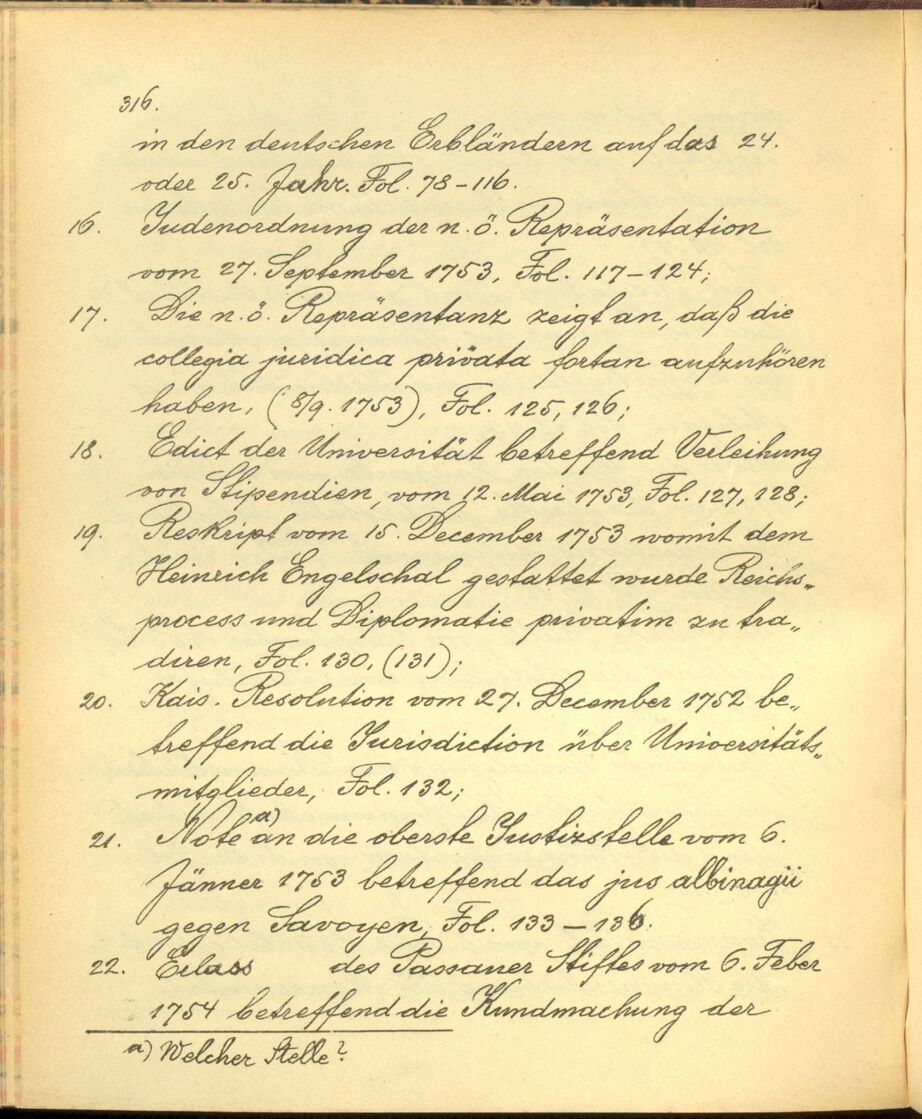 316.
in den deutschen Erbländern auf das 24.
oder 25. Jahr. Fol. 78-116.
16. Judenordnung der n. ö. Repräsentation
vom 27. September 1753, Fol. 117-124;
17. Die n. ö. Repräsentanz zeigt an, daß die
collegia juridica privata fortan aufzuhören
haben, (8/9. 1753), Fol. 125, 126;
18. Edict der Universität betreffend Verleihung
von Stipendien, vom 12. Mai 1753, Fol. 127, 128;
19. Reskript vom 15. December 1753 womit dem
Heinrich Engelschal gestattet wurde Reichs„
process und Diplomatie privatim zu tra„
diren, Fol. 130, (131);
20. Kais. Resolution vom 27. December 1752 be„
treffend die Jurisdiction über Universitäts„
mitglieder, Fol. 132;
21. Note a) an die oberste Justizstelle vom 6.
Jänner 1753 betreffend das jus albinagii
gegen Savoyen, Fol. 133 – 136.
22. Erlass des Passauer Stiftes vom 6. Feber
1754 betreffend die Kundmachung der
a) Welcher Stelle?